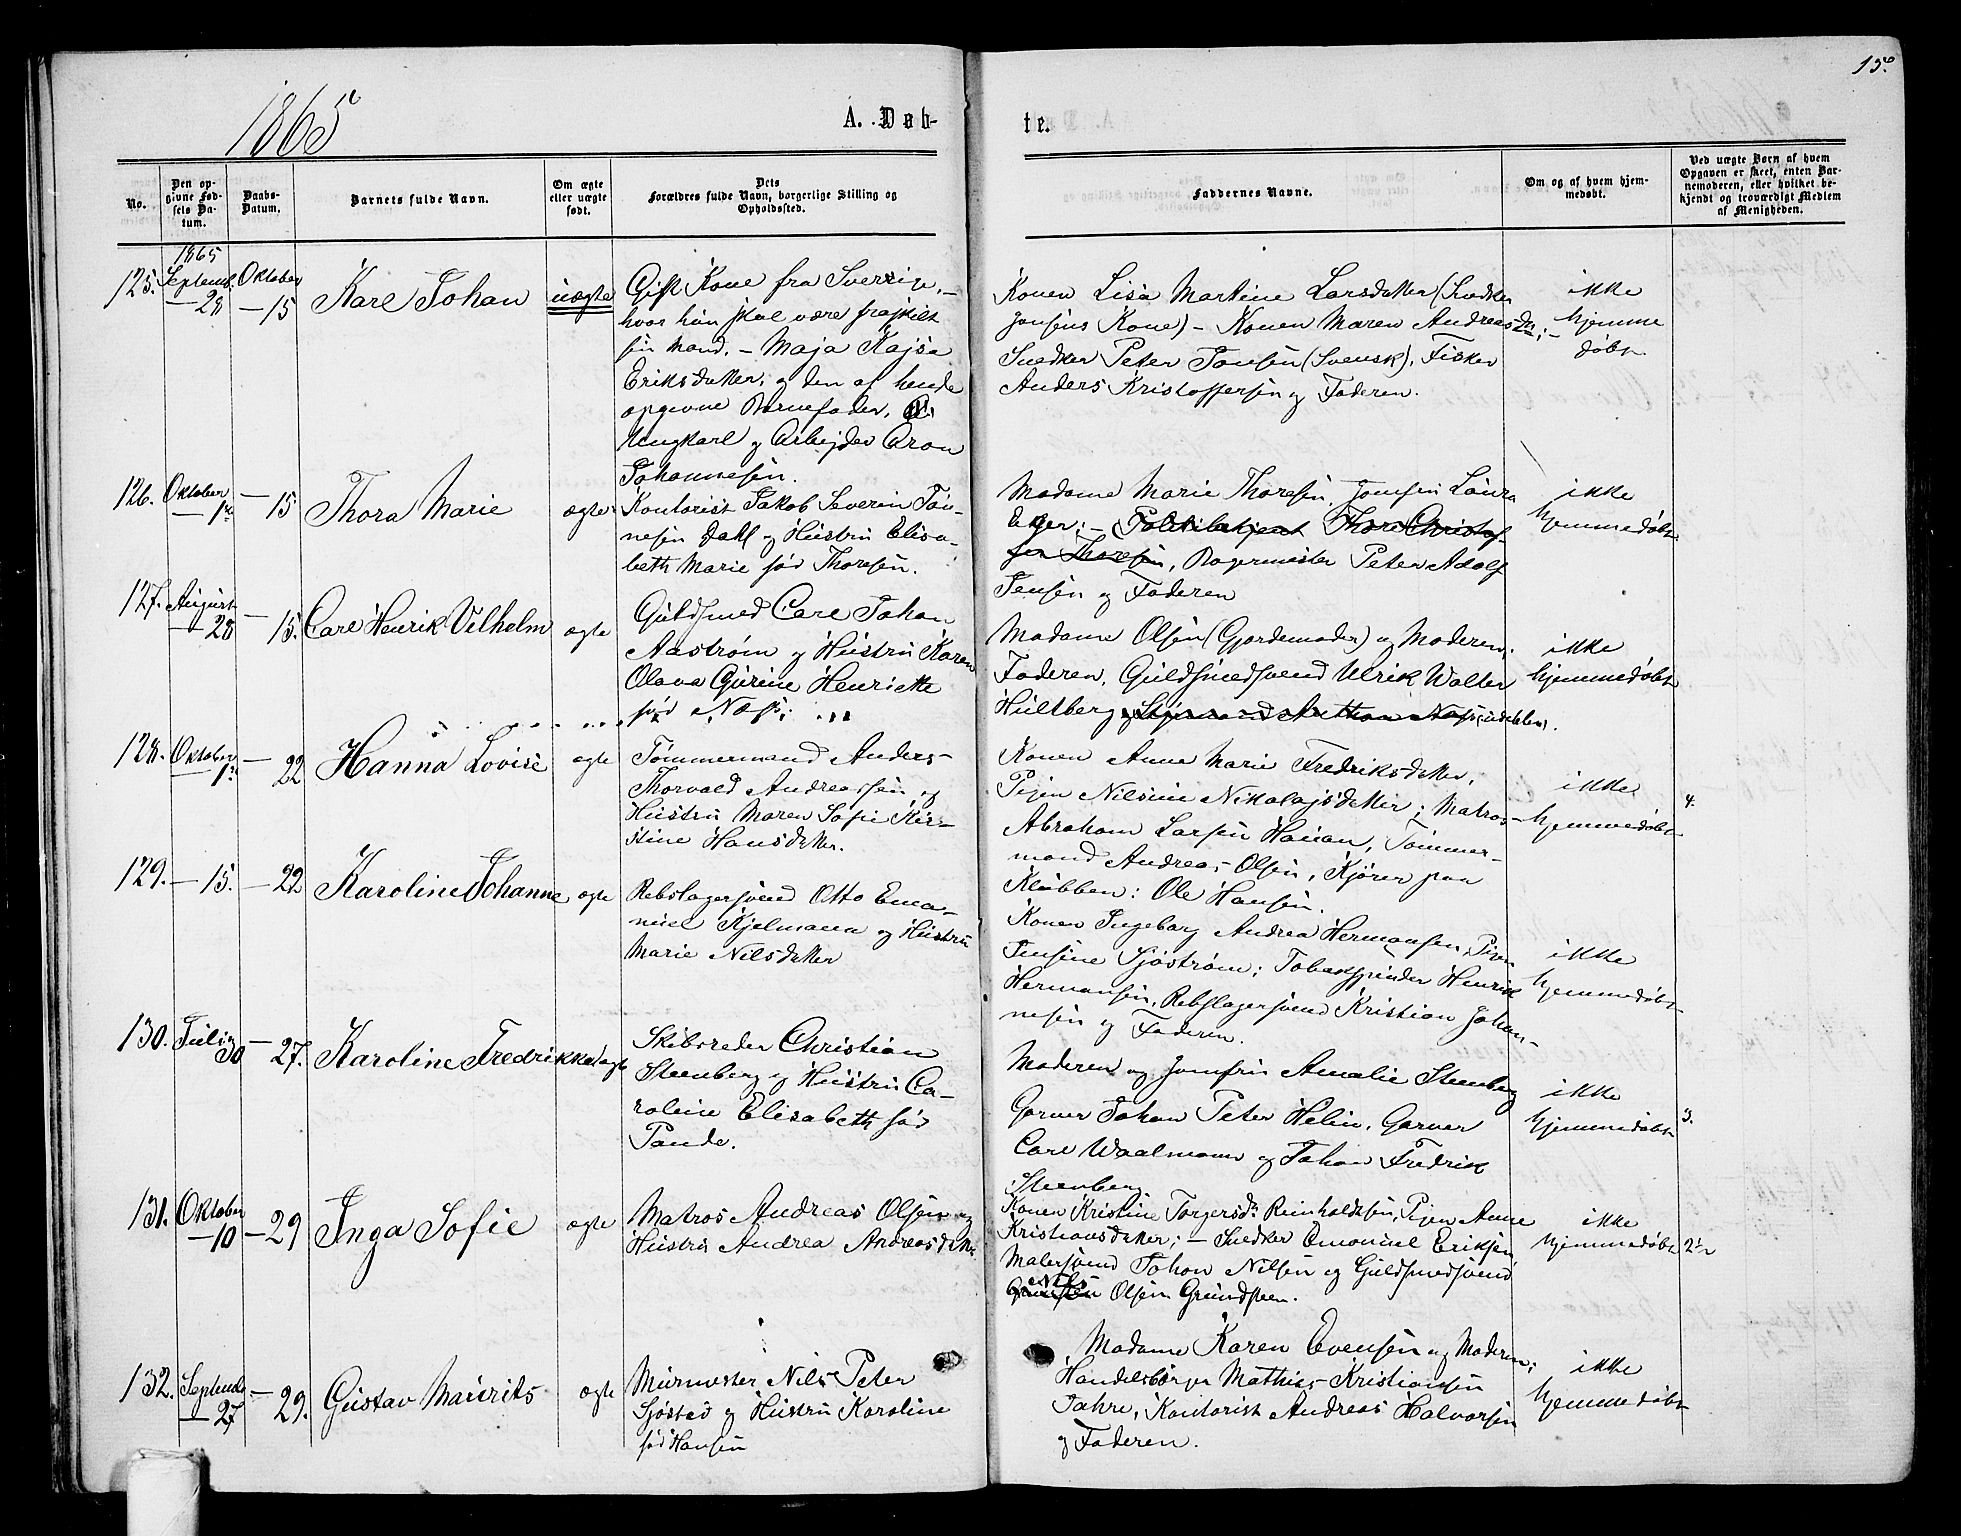 15.
1865
A. Døb-
te.
No.
Den op-
givne Fød-
sels Da-
tum.
Daabs-
Datum.
Barnets fulde Navn.
Om ægte
eller uægte
født.
Dets
Forældres fulde Navn, borgerlige Stilling og
Opholdssted.
Faddernes Navne.
Om og af hvem hjem-
medøbt.
Ved uægte Børn af hvem
Opgaven er skeet, enten Bar-
nemoderen, eller hvilket be-
kjendt og troværdigt Medlem
af Menigheden.
1865
125. Septemb. 28 Oktober 15 Karl Johan uægte
Gift Kone fra Sverrige,
hvor hun skal være fraskilt
sin Mand, – Maja Kajsa
Eriksdatter, og den af hende
opgivne Barnefader,
Ungkarl og Arbejder Aron
Johannesen.
Konen Lisa Martine Larsdatter (Snedker
Jonsens Kone) – Konen Maren Andreasdr; –
Snedker Peter Jonsen (Svensk), Fisker
Anders Kristoffersen og Faderen.
ikke
hjemme
døbt
126. Oktober 1ste – 15 Thora Marie ægte
Kontorist Jakob Severin Tøn-
nesen Dahl og Hustru Elisa-
beth Marie fød Thoresen.
Madame Marie Thoresen, Jomfru Laura
Eger; – Politibetjent Thor Christof-
fer Thoresen, Bagermester Peter Adolf
Jensen og Faderen
ikke
hjemmedøbt
127. August 28 – 15. Carl Henrik Vilhelm ægte
Guldsmed Carl Johan
Aastrøm og Hustru Karen
Olava Gurine Henriette
fød Næss;
Madame Olsen (Gjordemoder) og Moderen;
Faderen, Guldsmedsvend Ulrik Walter
Hultberg og Styrmand Anthon Næss
ikke
hjemmedøbt
128. Oktober 1ste – 22 Hanna Lovise ægte
Tømmermand Anders
Thorvald Andreassen og
Hustru Maren Sofie Kir-
stine Hansdatter.
Konen Anne Marie Fredriksdatter,
Pigen Nilsine Nikolajsdatter; Matros
Abraham Larsen Hauan, Tømmer-
mand Andreas Olsen, Kjører paa
Klubben: Ole Hansen.
ikke
hjemmedøbt
4.
129. – 15. – 22 Karoline Johanne ægte
Rebslagersvend Otto Ema-
nuel Kjelmann og Hustru
Marie Nilsdatter
Konen Ingeborg Andrea Hermansen, Pigen
Jensine Sjöström; Tobakspinder Henrik
Hermansen, Rebslagersvend Kristian Johan-
nesen og Faderen.
ikke
hjemmedøbt
130. Juli 30 – 27. Karoline Fredrikke ægte
Skibsreder Christian
Steenberg og Hustru Ca-
roline Elisabeth fød
Pande.
Moderen og Jomfru Amalie Steenberg
Garver Johan Peter Helin, Garver
Carl Waalmann og Johan Fredrik
Steenberg
ikke
hjemmedøbt
3.
131. Oktober – 10 – 29 Inga Sofie ægte
Matros Andreas Olsen og
Hustru Andrea Andreasdatter
Konen Kristine Torgersdr Reinholdtsen, Pigen Anne
Kristiansdatter; – Snedker Emanuel Eriksen
Malersvend Johan Nilsen og Guldsmedsvend
Nils
Olsen Grundsteen.
ikke
hjemmedøbt
2½
132. September – 27 – 29. Gustav Mauritz ægte
Murmester Nils Peter
Sjösted og Hustru Karoline
fød Hansen
Madame Karen Evensen og Moderen;
Handelsborger Mathias Kristiansen
Jahre, Kontorist Andreas Halvorsen
og Faderen.
ikke
hjemmedøbt